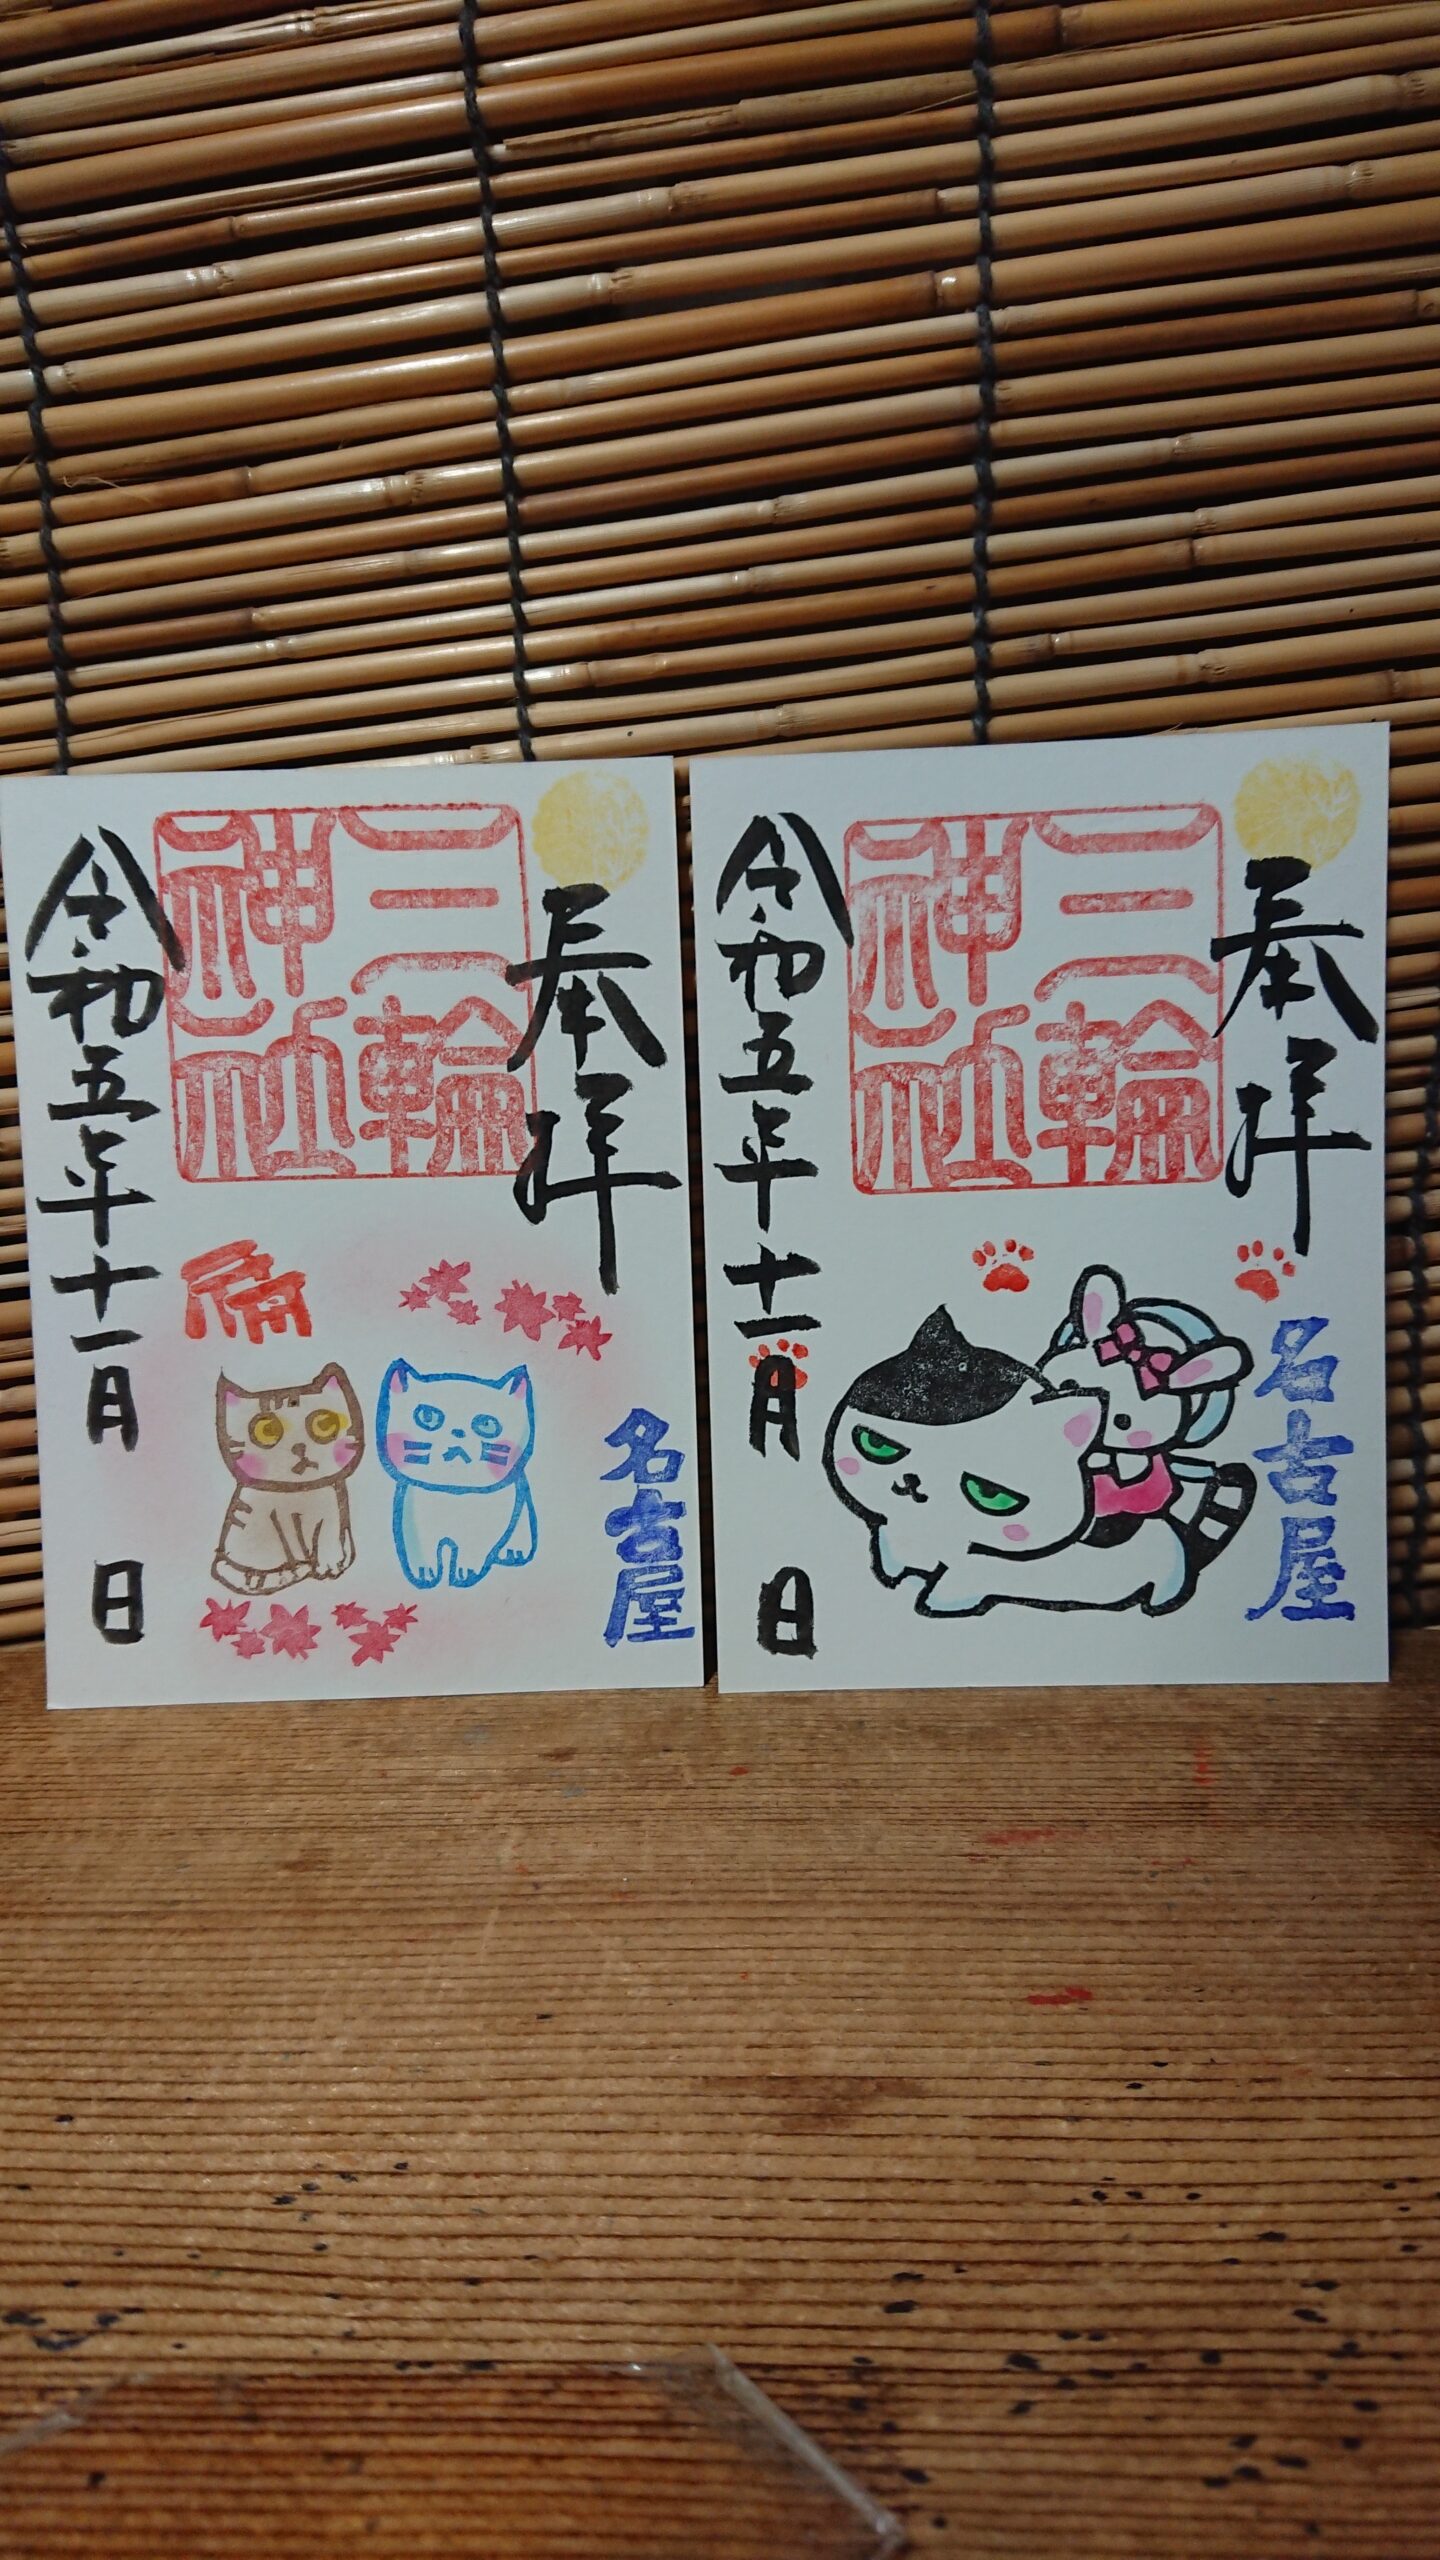 奉拝
三輪
神社
名古屋
令和五年十一月　日
奉拝
三輪
神社
名古屋
令和五年十一月　日